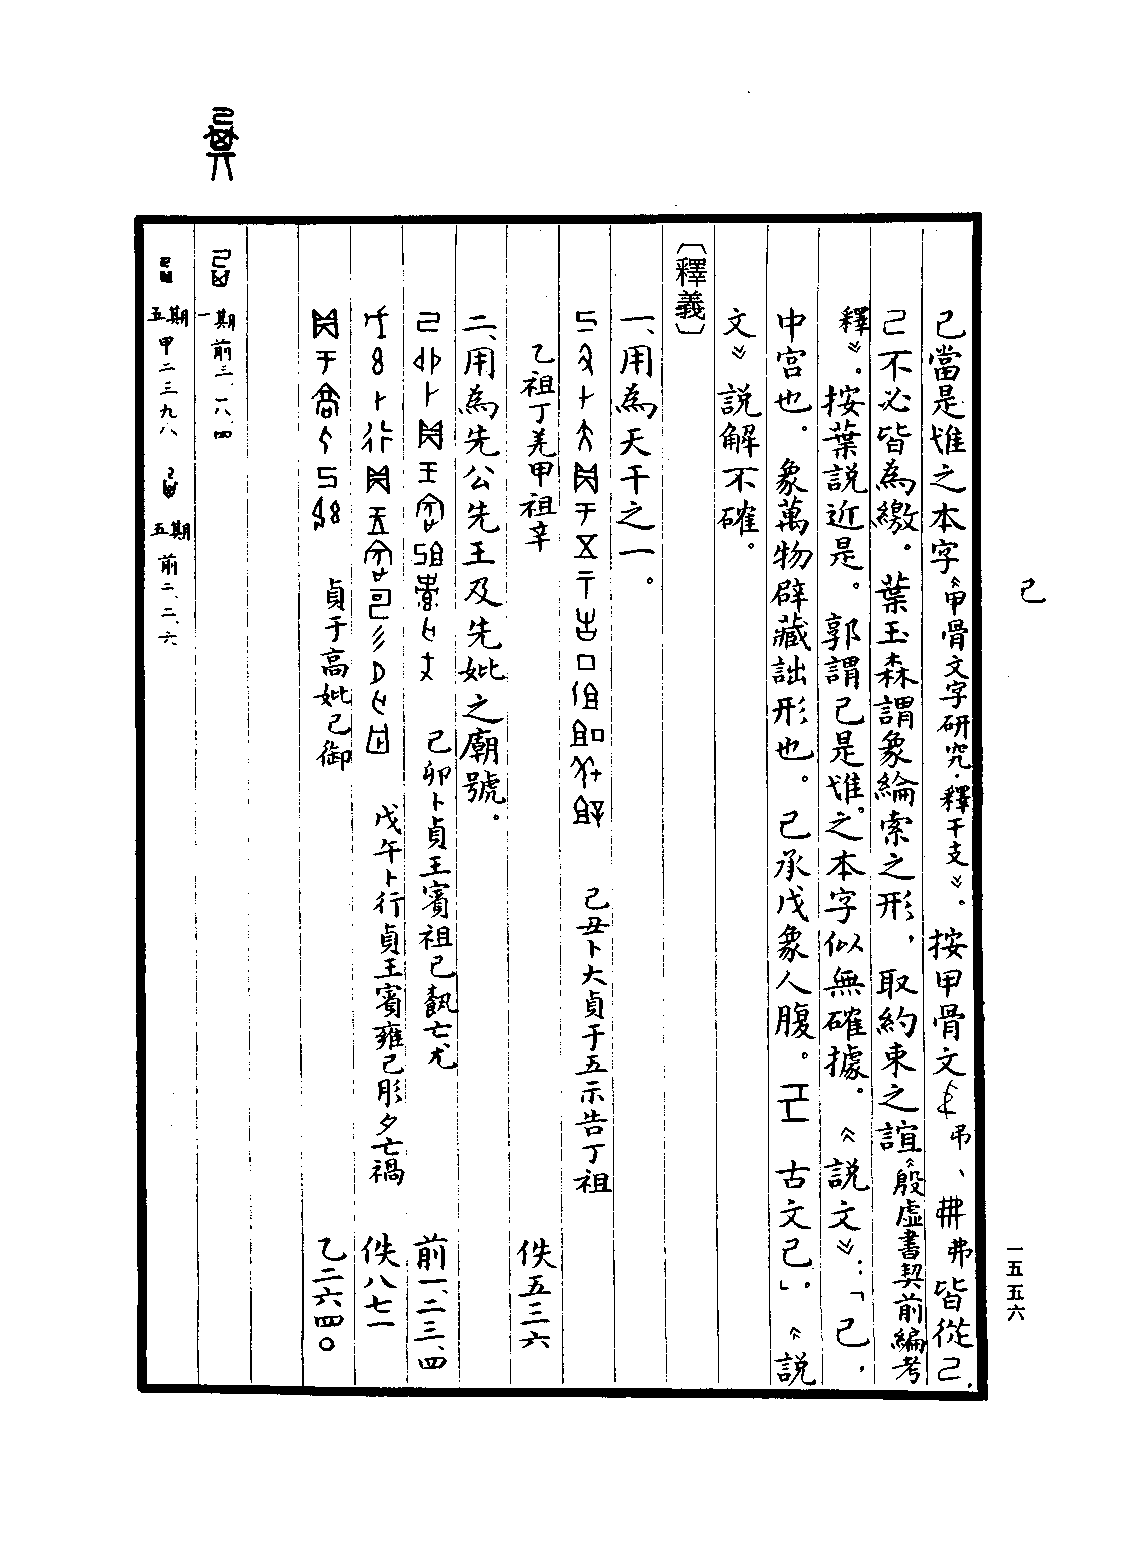 己
一五五六
己當是惟之本字《甲骨文字研究·釋干支》。按甲骨文弔、弗皆從己，
己不必皆為繳。葉玉森謂象綸索之形，取約束之誼《殷虛書契前編考
釋》。按葉說近是。郭謂己是惟之本字似無確據。《說文》：「己，
中宮也。象萬物辟藏詘形也。己承戊象人腹。 古文己」。《說
文》說解不確。
〔釋義〕
一、用為天干之一。
己丑卜大貞于五示告丁祖
乙祖丁羌甲祖辛 佚五三六
二、用為先公先王及先妣之廟號。
己卯卜貞王賓祖己㸑亡尤 前一、二三、四
戊午卜行貞王賓雍己肜夕亡禍 佚八七一
貞于高妣己御 乙二六四〇
一期前三、一八、四
五期甲二三九八 五期前二、二、六